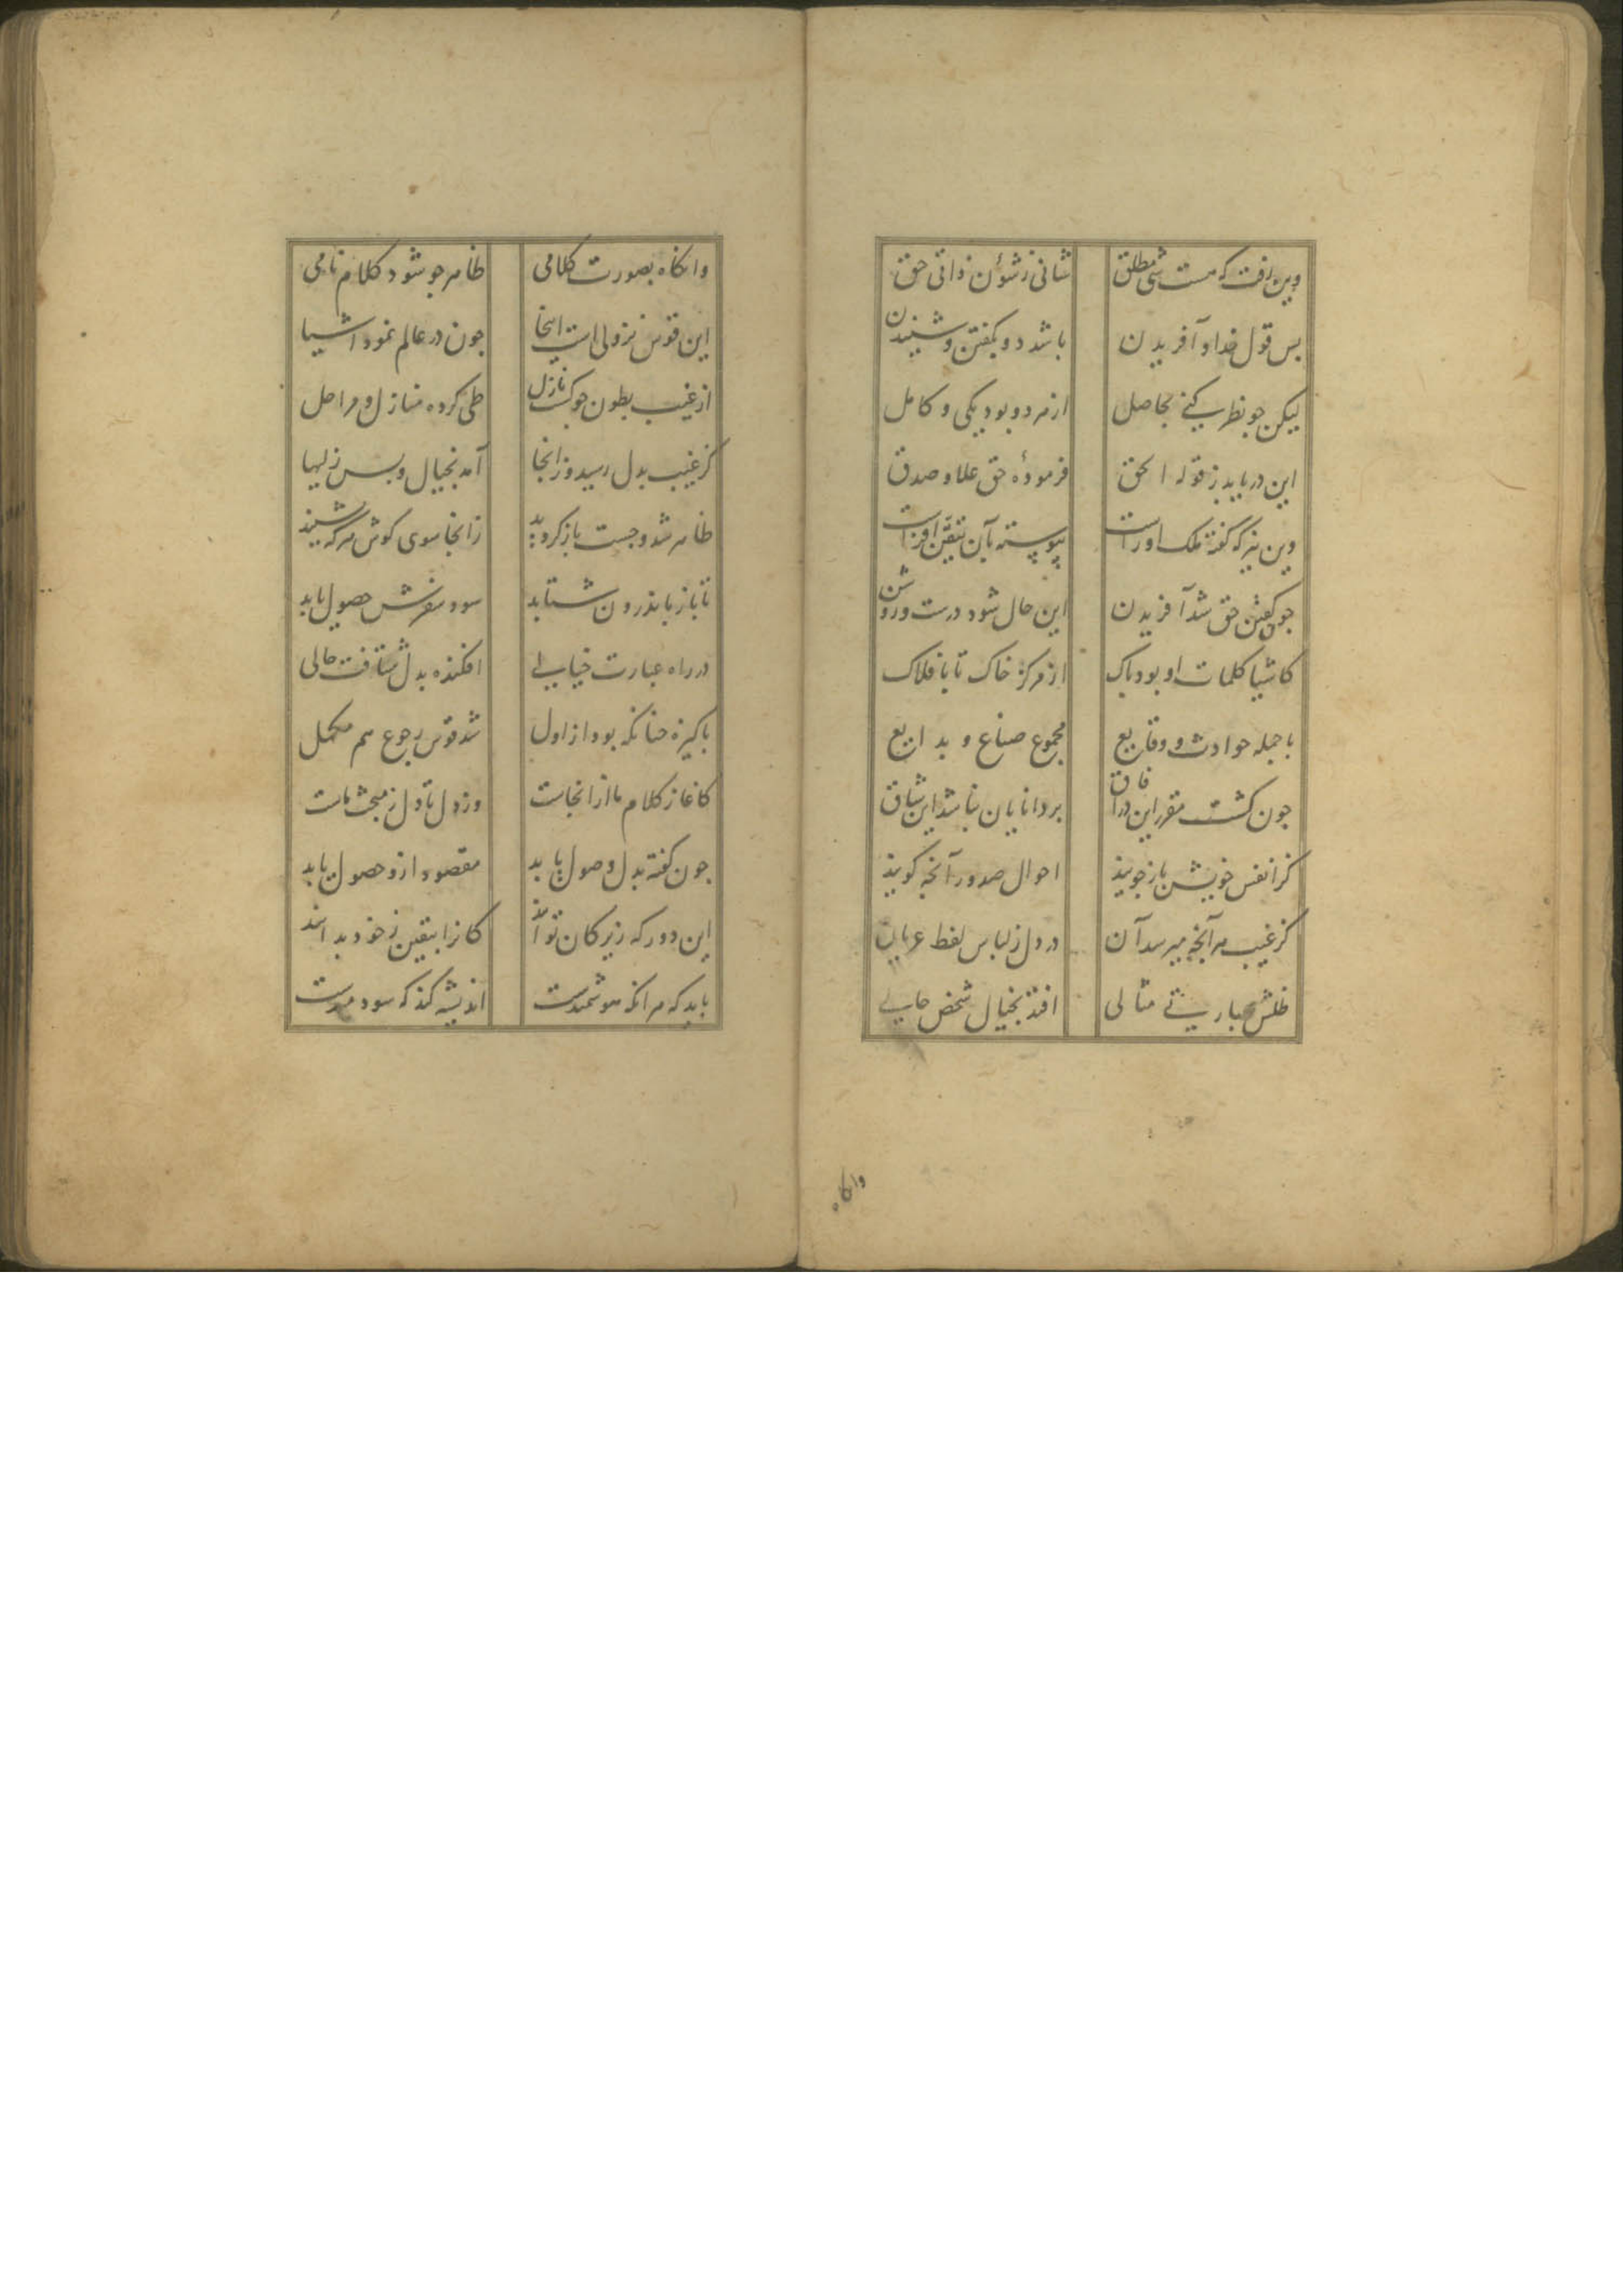 وین رفت که هست شی مطلق شانی زشؤن ذاتی حق
بس قول خدا و آفریدن باشد دو بگفتن و شنیدن
لیکن جو نظر کنی بحاصل از هر دو بود یکی و کامل
این دریابد ز قوله الحق فرمودۀ حق علا و صدق
وین نیز که گفته ملک اوراست پیوسته بآن تیقن افزاست
جون گفتن حق شد آفریدن این حال شود درست و روشن
کاشیا کلمات او بود پاک از مرکز خاک تا بافلاک
با جمله حوادث و وقایع مجموع صنایع و بدایع
جون کشت مقرر این در آفاق بر دانایان نباشد این شاق
کز نفس خویش باز جویند احوال صدور آنچه کویند
کز غیب هر آنچه میرسد آن در دل ز لباس لفظ عریان
ظلش بعبارتی مثالی افتد بخیال شخص حالی
وانکاه
وانکاه بصورت کلامی ظاهر جو شود کلام نامی
این قوس نزولی است اینجا جون در عالم نمود اشیا
از غیب بطون جو کشت نازل طی کرده منازل و مراحل
کز غیب بدل رسید وزانجا آمد بخیال و بس ز لبها
ظاهر شد و جست باز کردید زانجا سوی کوش هر که بشنید
تا باز باندرون شتابد سود سفرش حصول یابد
در راه عبارت خیالی افکنده بدل شتافت حالی
پاکیزه جنانکه بود از اول شد قوس رجوع هم مکمل
کاغاز کلام ما ازانجاست وز دل تا دل ز مبحث ماست
جون کفته بدل وصول یابد مقصود ازو حصول یابد
این دور که زیرکان توانند کانرا بیقین ز خود بدانند
باید که هر انکه هوشمندست اندیشه کند که سودمندست